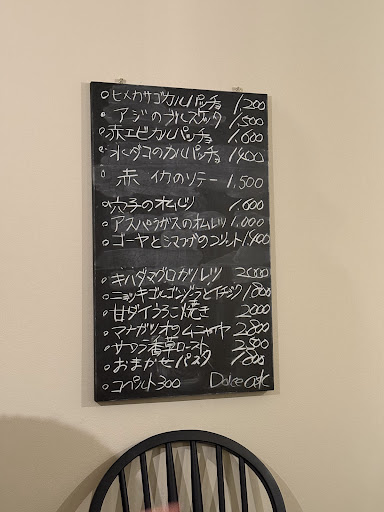 ヒメカサゴカルパッチョ 1,200
アジのブルスケッタ 1,500
赤エビカルパッチョ 1,600
水ダコのカルパッチョ 1,400
赤イカのソテー 1,500
穴子のオムレツ 1,600
アスパラガスのオムレツ 1,000
ゴーヤとシマアジのフリット 1,400
キハダマグロカツレツ 2000
ニョッキゴルゴンゾーラとイチジク 1800
甘ダイうろこ焼き 2000
マナガツオのムニャヤ 2800
サワラ香草ロースト 2800
おまかせパスタ 1800
コペルト300 Dolce ask